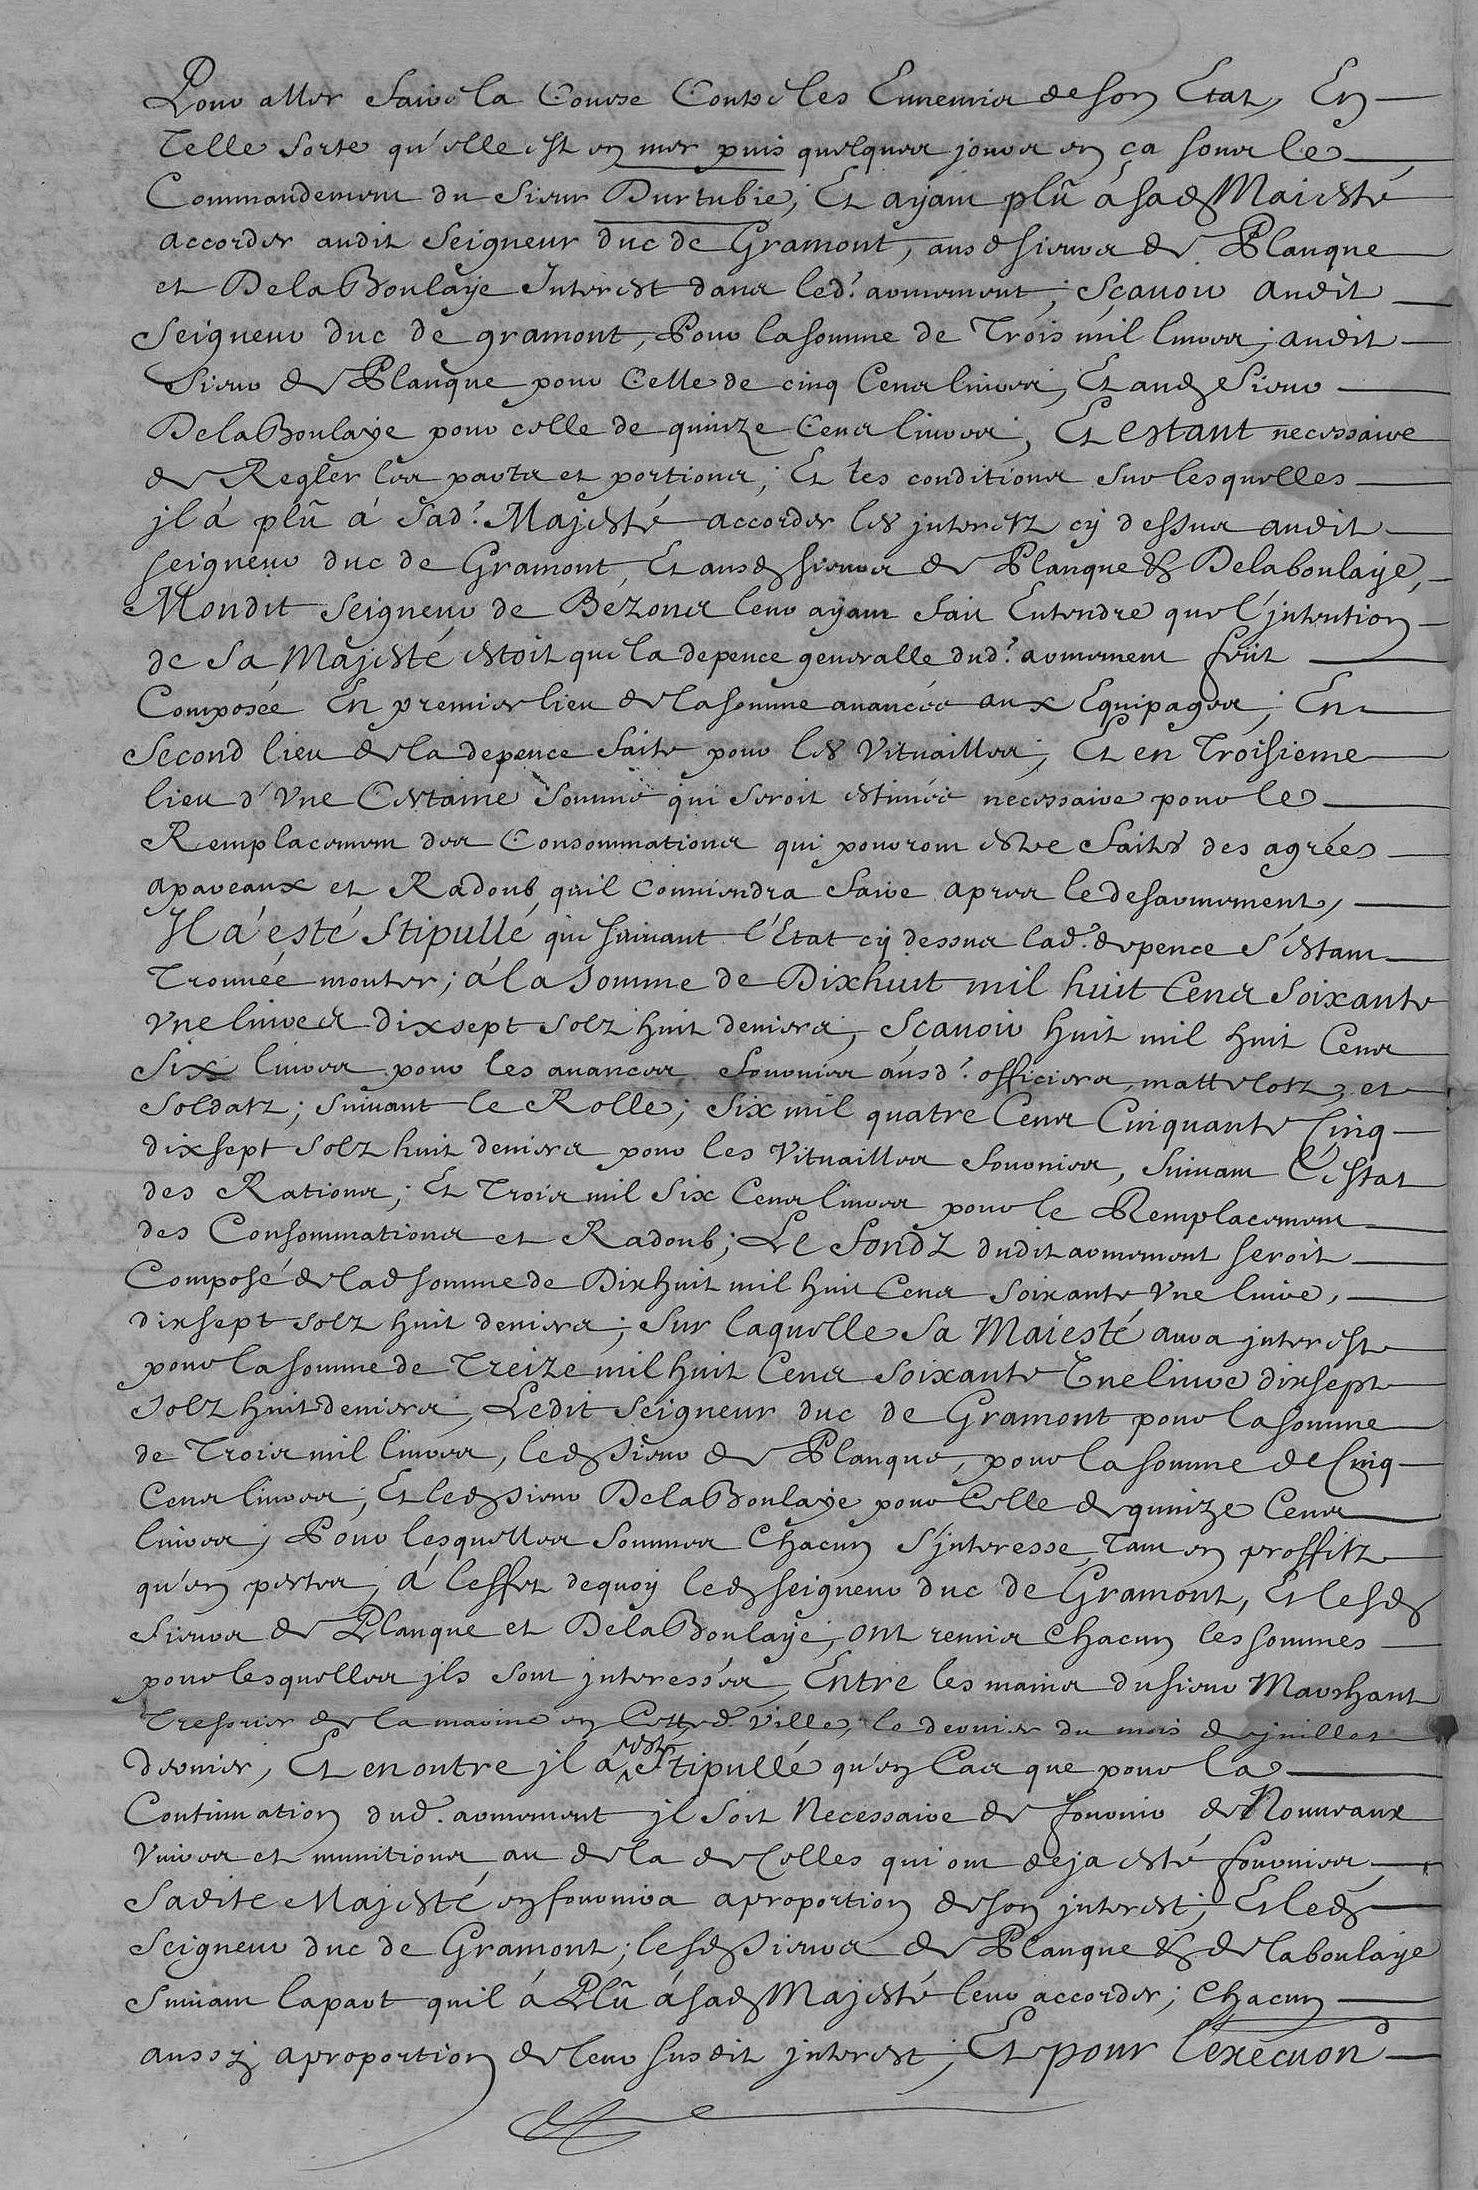 Pour aller faire la Course Contre les Ennemis de son Etat, En
Telle sorte qu'elle est en mer puis quelques jours en ça sous le
Commandement du sieur Durtubie; Et ayant plû á sad Maiesté
accorder audit seigneur duc de Gramont, aus d sieurs de Planque
et DelaBoulaye Interest dans led.t armement; Sçavoir audit
Seigneur duc de gramont, Pour la somme de Trois mil livres; audit
Sieur de Planque pour Celle de cinq Cens livres, Et aud Sieur
DelaBoulaye pour celle de quinze Cens livres; Et estant necessaire
de Regler les parts et portions; Et les conditions sur lesquelles
jl á plû á Sad.e Majesté accorder les jnteretz cy dessus audit
seigneur duc de Gramont, Et ausd sieurs de Planque & Delaboulaye,
Mondit Seigneur de Bezons leur ayant fait Entendre que l'jntention
de Sa Majesté estoit que la depence generalle dud.t armement fût
Composée En premier lieu de la somme avancée aux Equipages; En
Second lieu de la depence faite pour les Vituailles; Et en Troisieme
lieu d'Une Certaine Somme qui seroit estimée necessaire pour le
Remplacement des Consommations qui pouront estre faites des agrées
aparaux et Radoub quil Conviendra faire apres le desarmement,
Il á esté Stipullé que suivant l'Etat cy dessus lad.e depence s'estant
Trouvée monter; á la somme de Dixhuit mil huit Cens soixante
Une livres dixsept solz huit deniers, Sçavoir huit mil huit Cens
Six livres pour les avances fournies ausd.s officiers, mattelotz, et
Soldatz; Suivant le Rolle; Six mil quatre Cens Cinquante Cinq
dixsept solz huit deniers pour les Vituailles fournies, Suivant l'Estat
des Rations; Et Trois mil Six Cens livres pour le Remplacement
des Consommations et Radoub; Le fondz dudit armement seroit
Composé de lad somme de Dixhuit mil huit Cens soixante Une livre,
dixsept solz huit deniers; Sur laquelle Sa Maiesté aura jnterest
pour la somme de Treize mil huit Cens Soixante Une livre dixsept
solz huit deniers, Ledit Seigneur duc de Gramont pour la somme
de Trois mil livres, led Sieur de Planque, pour la somme de Cinq
Cens livres; Et led Sieur DelaBoulaye pour Celle de quinze Cens
livres; Pour lesquelles Sommes Chacun S'jnteresse Tant en proffitz
qu'en pertes; á l'effet dequoy led seigneur duc de Gramont, Et lesd
Sieurs de Planque et DelaBoulaye, ont remis Chacun les sommes
pour lesquelles jls sont jnteressés, Entre les mains du sieur Marchant
Tresorier de la marine en Cetted.e Ville, le dernier du mois de juillet
dernier, Et en outre jl á esté Stipullé qu'en Cas que pour la
Continuation dud.t armement jl soit Necessaire de fournir de Nouveaux
Vivres et munitions au dela de Celles qui ont deja esté fournies
Sadite Majesté en fournira aproportion de son jnterest; Et led
Seigneur duc de Gramont; lesd Sieurs de Planque & de laboulaye
Suivant lapart quil á Plû á sad Majesté leur accorder; Chacun
aussy aproportion de leur susdit jnterest; Et pour l'execuon